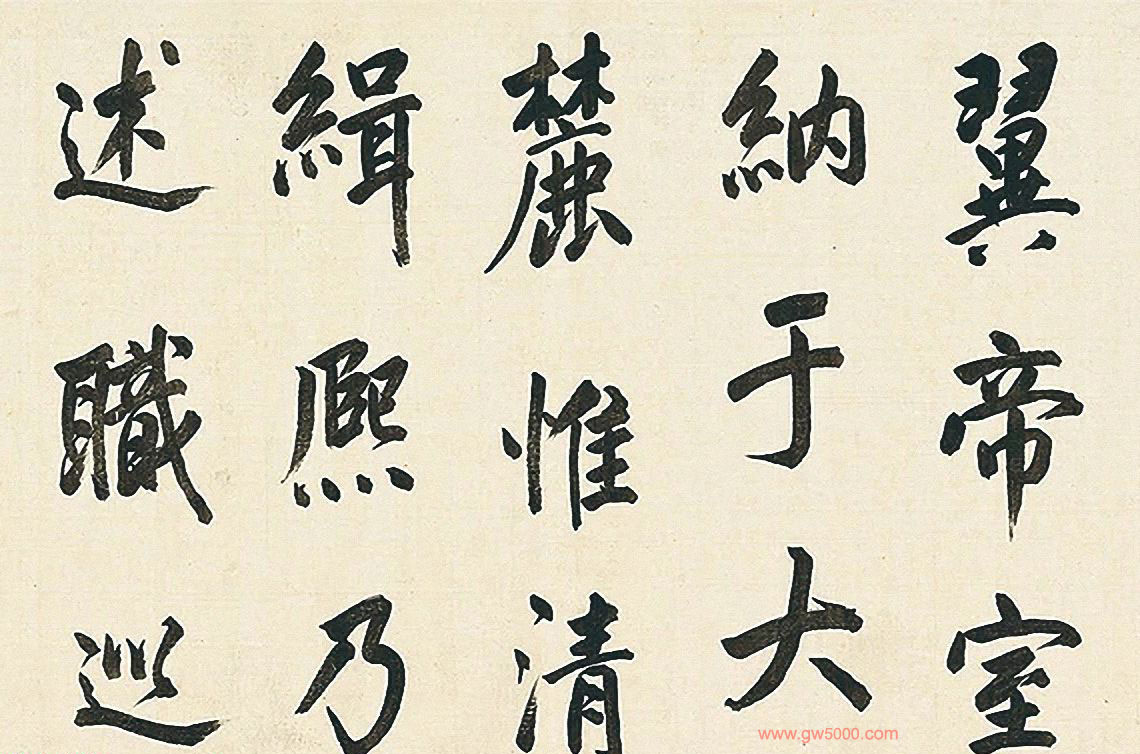 翼帝室
納于大
麓惟清
緝熙乃
述職巡
www.gw5000.com